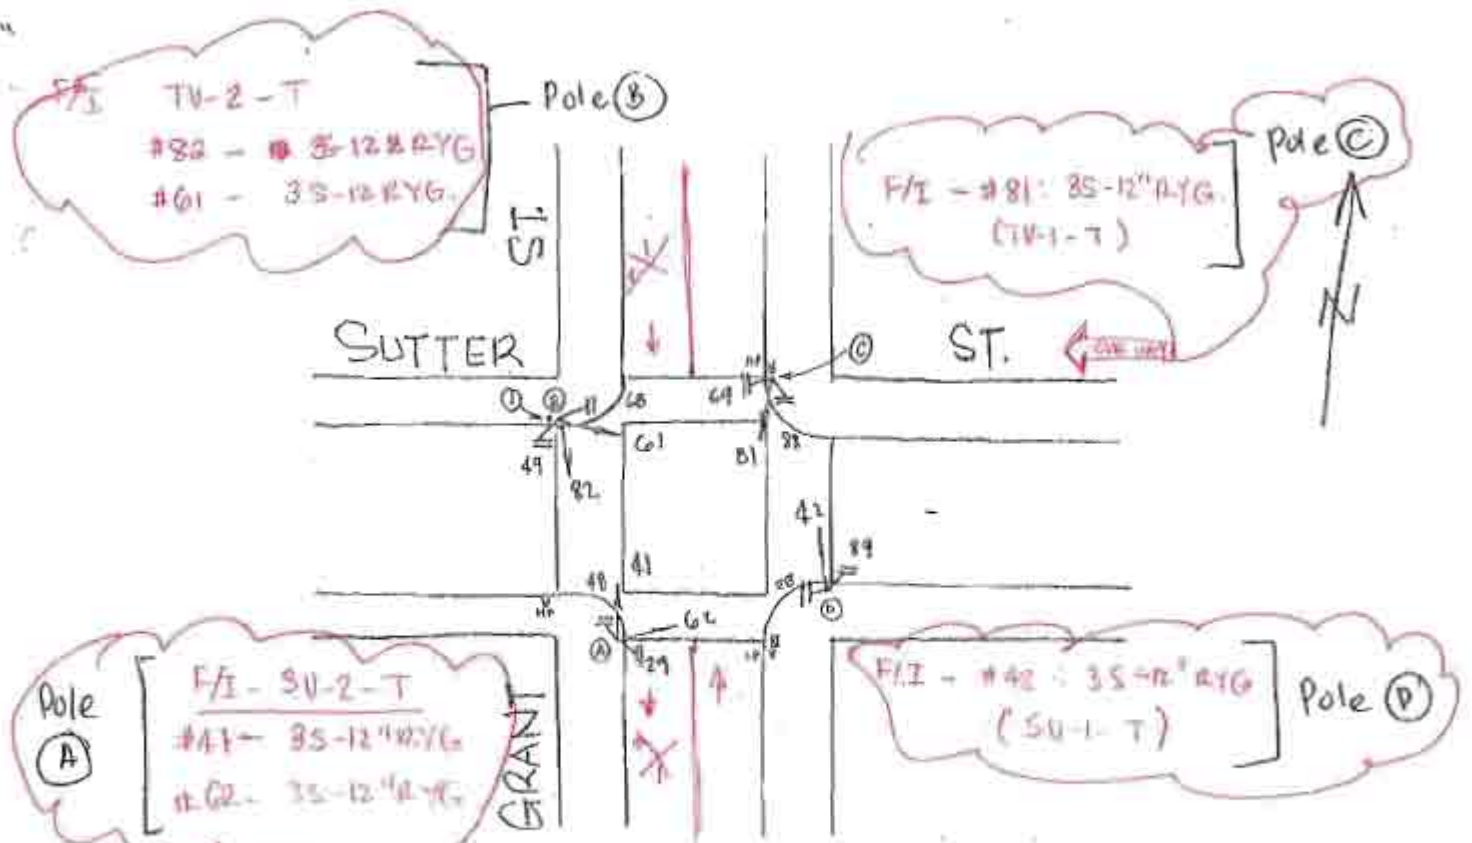 F/I TV-2-T
#82 - 3S-12" RYG
#61 - 3S-12 RYG.
Pole B
Pole C
F/I - #81: 3S-12" RYG.
(TV-1-T)
N
ST
SUTTER
ST.
ONE WAY
C
HP
1
B
68
69
61
81
88
49
82
42
89
41
48
28
D
HP
A
62
29
HP
Pole
A
F/I - SV-2-T
#41 - 3S-12" RYG
#62 - 3S-12" RYG
GRANT
F/I - #42: 3S-12" RYG
(SV-1-T)
Pole D